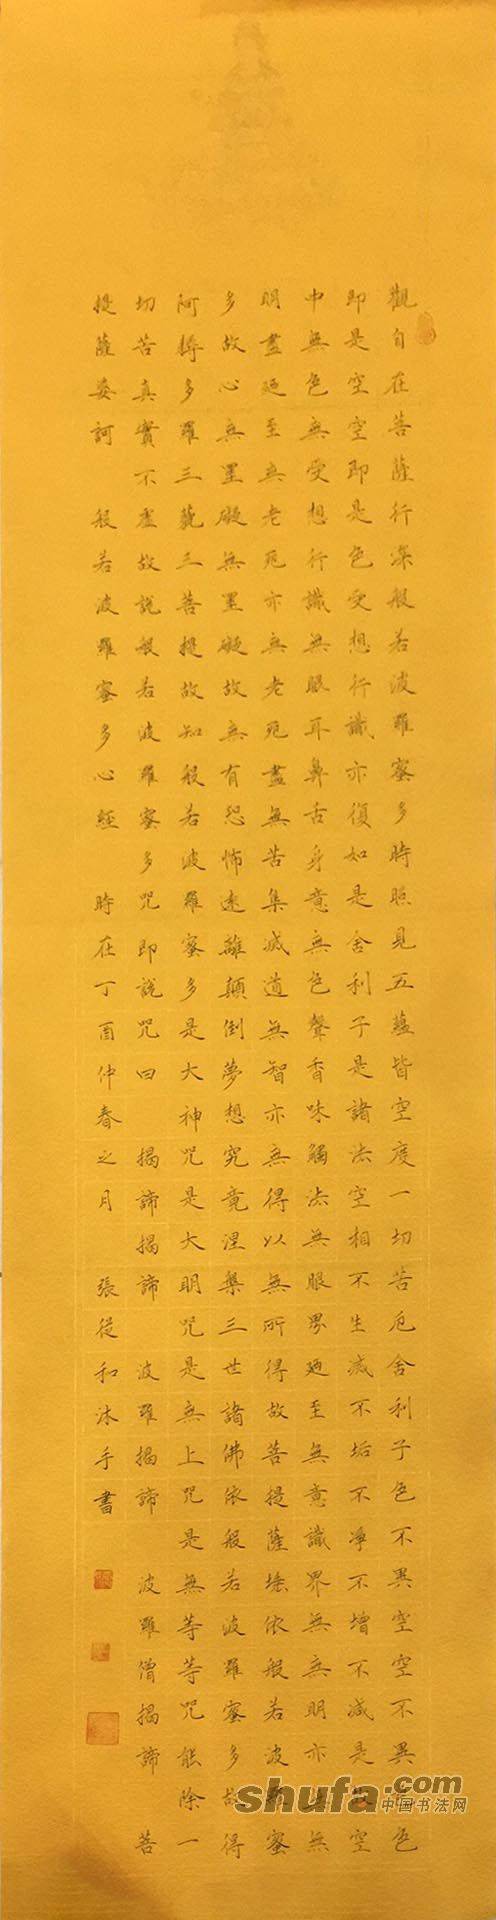 觀自在菩薩行深般若波羅蜜多時照見五蘊皆空度一切苦厄舍利子色不異空空不異色色
即是空空即是色受想行識亦復如是舍利子是諸法空相不生滅不垢不淨不增不減是故空
中無色無受想行識無眼耳鼻舌身意無色聲香味觸法無眼界廼至無意識界無無明亦無無
明盡廼至無老死亦無老死盡無苦集滅道無智亦無得以無所得故菩提薩埵依般若波羅蜜
多故心無罣礙無罣礙故無有恐怖遠離顛倒夢想究竟涅槃三世諸佛依般若波羅蜜多故得
阿耨多羅三藐三菩提故知般若波羅蜜多是大神咒是大明咒是無上咒是無等等咒能除一
切苦真實不虛故說般若波羅蜜多咒即說咒曰 揭諦揭諦 波羅揭諦 波羅僧揭諦 菩
提薩婆訶 般若波羅蜜多心經 時在丁酉仲春之月 張從和沐手書
shufa.com
中国书法网